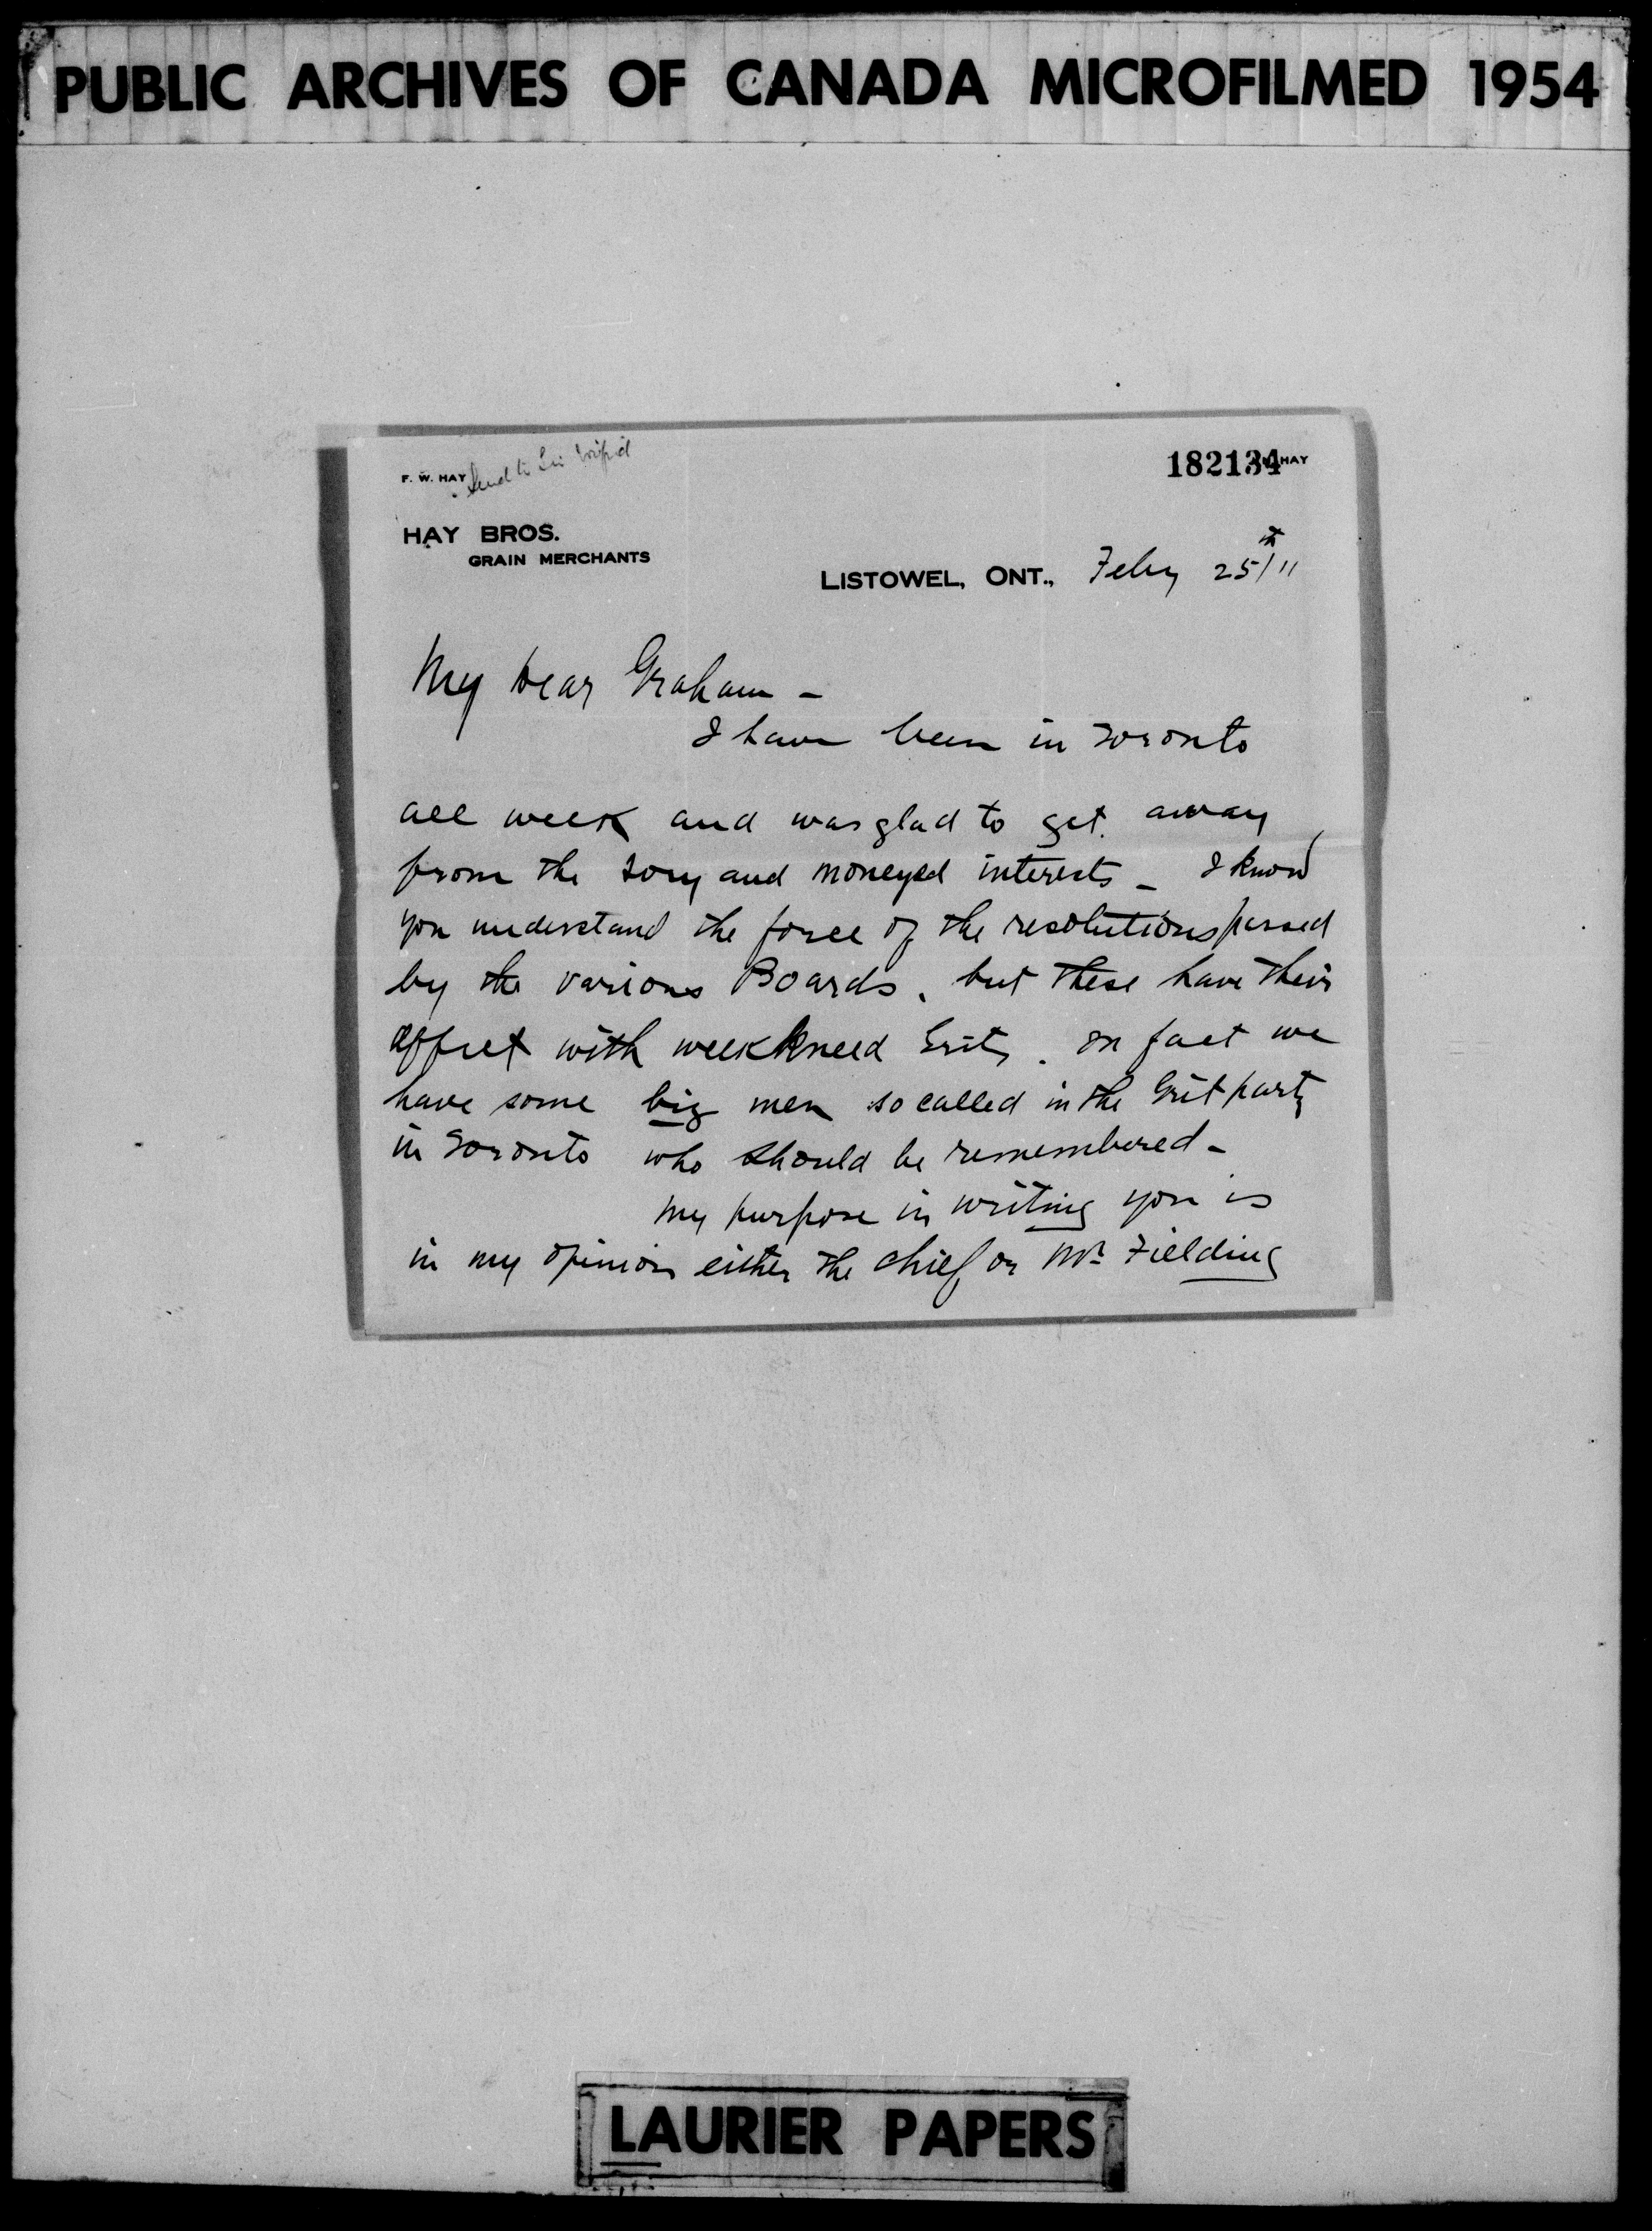 PUBLIC ARCHIVES OF CANADA MICROFILMED 1954
Send to Sir Wilfrid
F. W. HAY
182134 HAY
HAY BROS.
GRAIN MERCHANTS
LISTOWEL, ONT., Feby 25th/11
My Dear Graham -
I have been in Toronto
all week and was glad to get away
from the Tory and moneyed interests - I know
you understand the force of the resolutions passed
by the various Boards, but these have their
effect with weekkneed Grits. In fact we
have some big men so called in the Grit party
in Toronto who should be remembered -
My purpose in writing you is
in my opinion either the chief or Mr. Fielding
LAURIER PAPERS